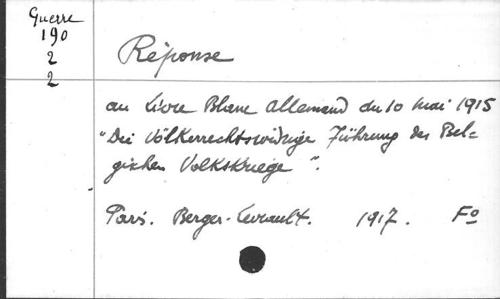 Guerre
190
2
2
Réponse
au Livre Blanc Allemand du 10 mai 1915
"Die Völkerrechtswidrige Führung des Bel-
gischen Volkskriegs".
Paris. Berger-Levrault. 1917. Fo